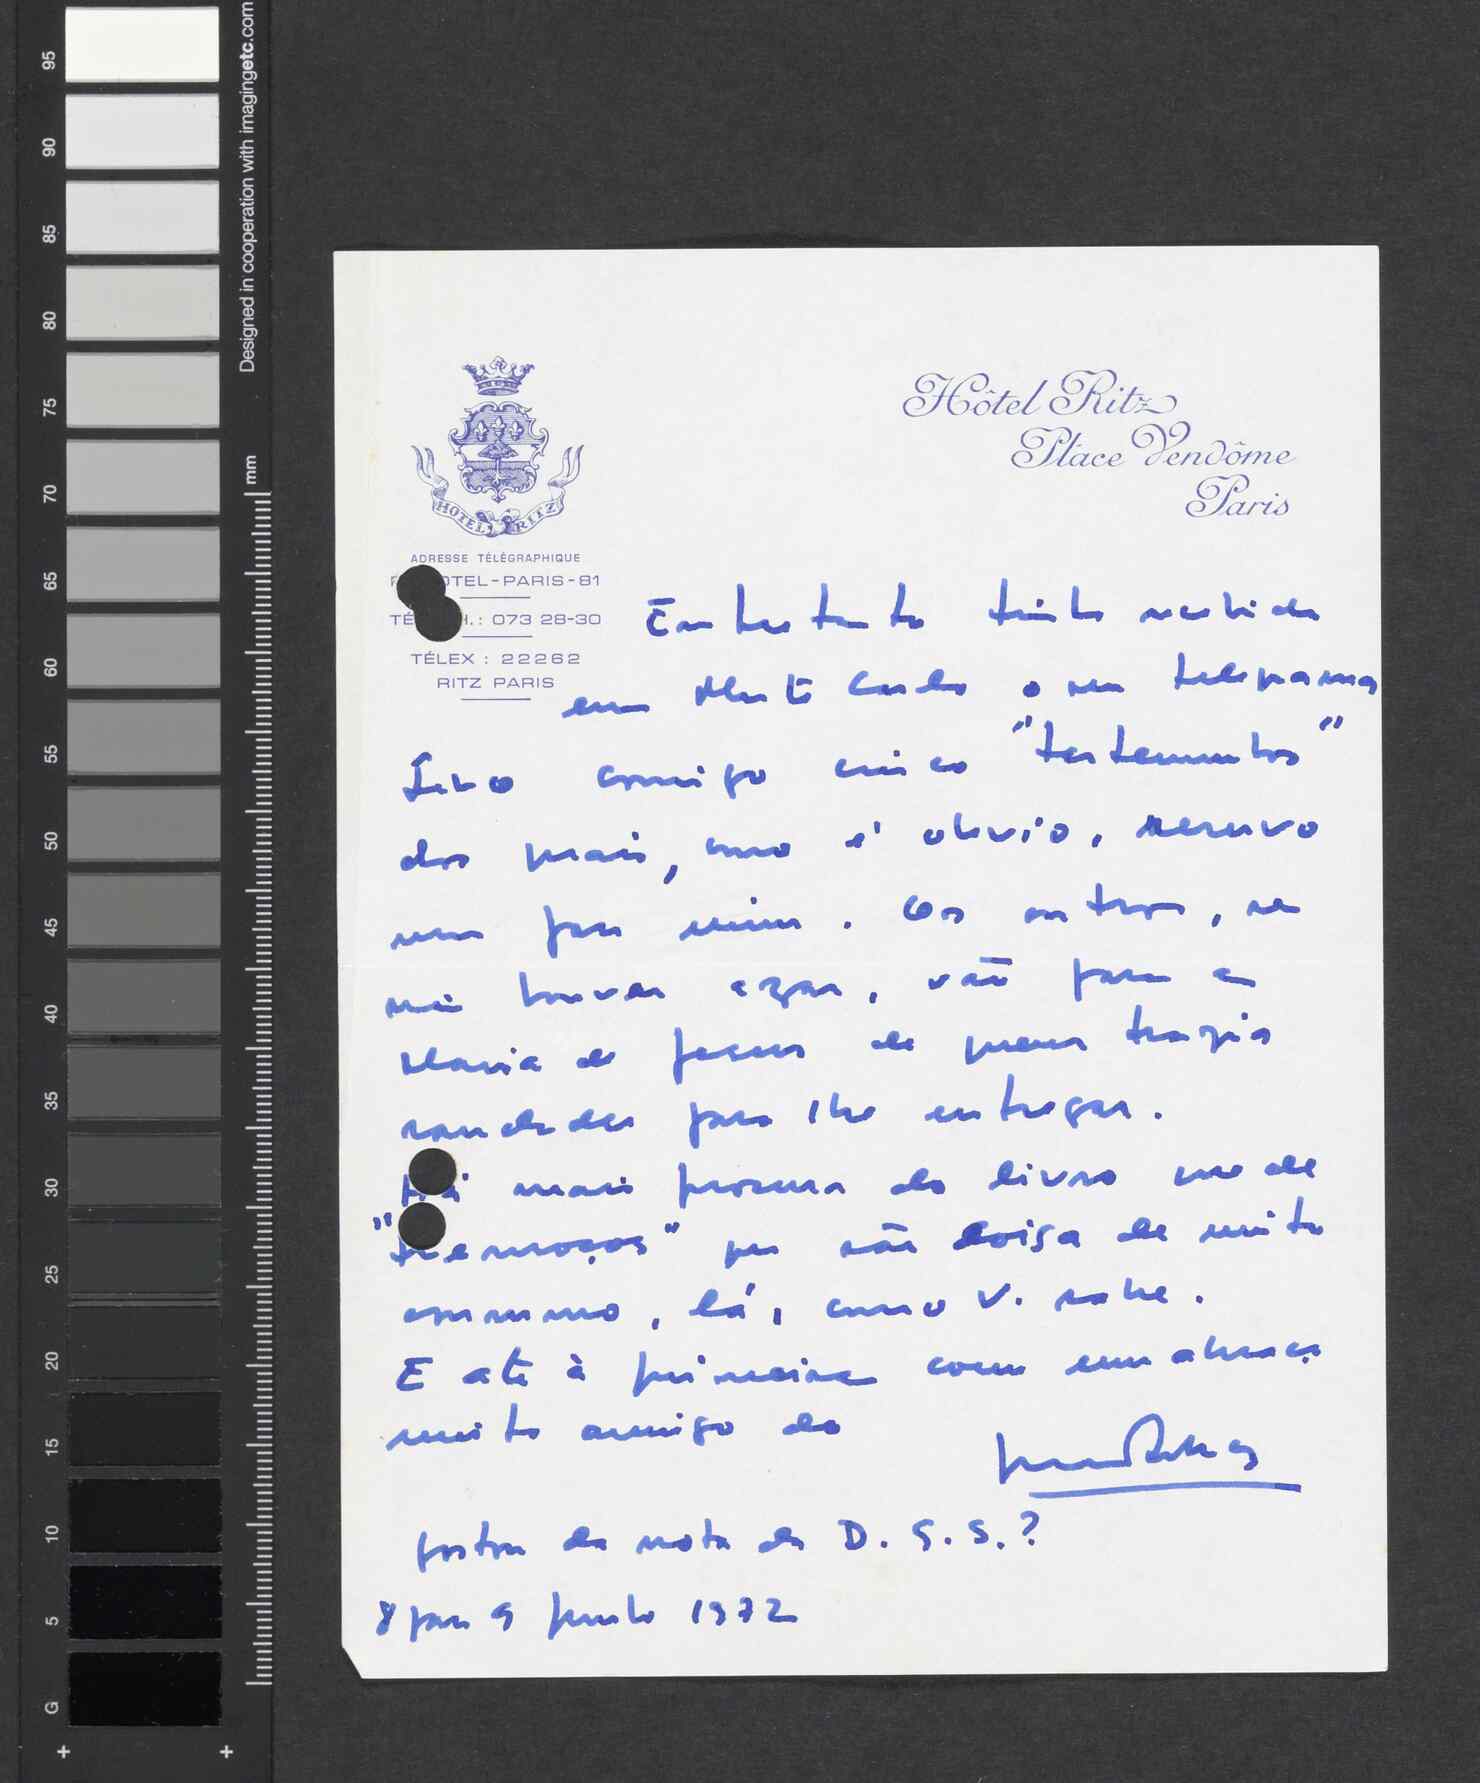 95
90
85
80
75
70
65
60
55
50
45
40
35
30
25
20
15
10
5
G
Designed in cooperation with imagingetc.com
mm
Hôtel Ritz
Place Vendôme
Paris
HOTEL RITZ
ADRESSE TÉLÉGRAPHIQUE
OTEL-PARIS-81
TÉ H.: 073 28-30
TÉLEX : 22262
RITZ PARIS
Entretanto tinha recebido
em Monte Carlo o seu telegrama
Levo comigo cinco "testemunhos"
dos quais, como é obvio, reservo
um para mim. Os outros, se
não houver azar, vão para a
Maria de Jesus de quem trazia
saudades para lhe entregar.
Há mais procura do livro que de
"tremoços" que são coisa de muito
consumo, lá, como V. sabe.
E até à primeira com um abraço
muito amigo do
Gostou da nota da D. G. S.?
8 para 9 Junho 1972